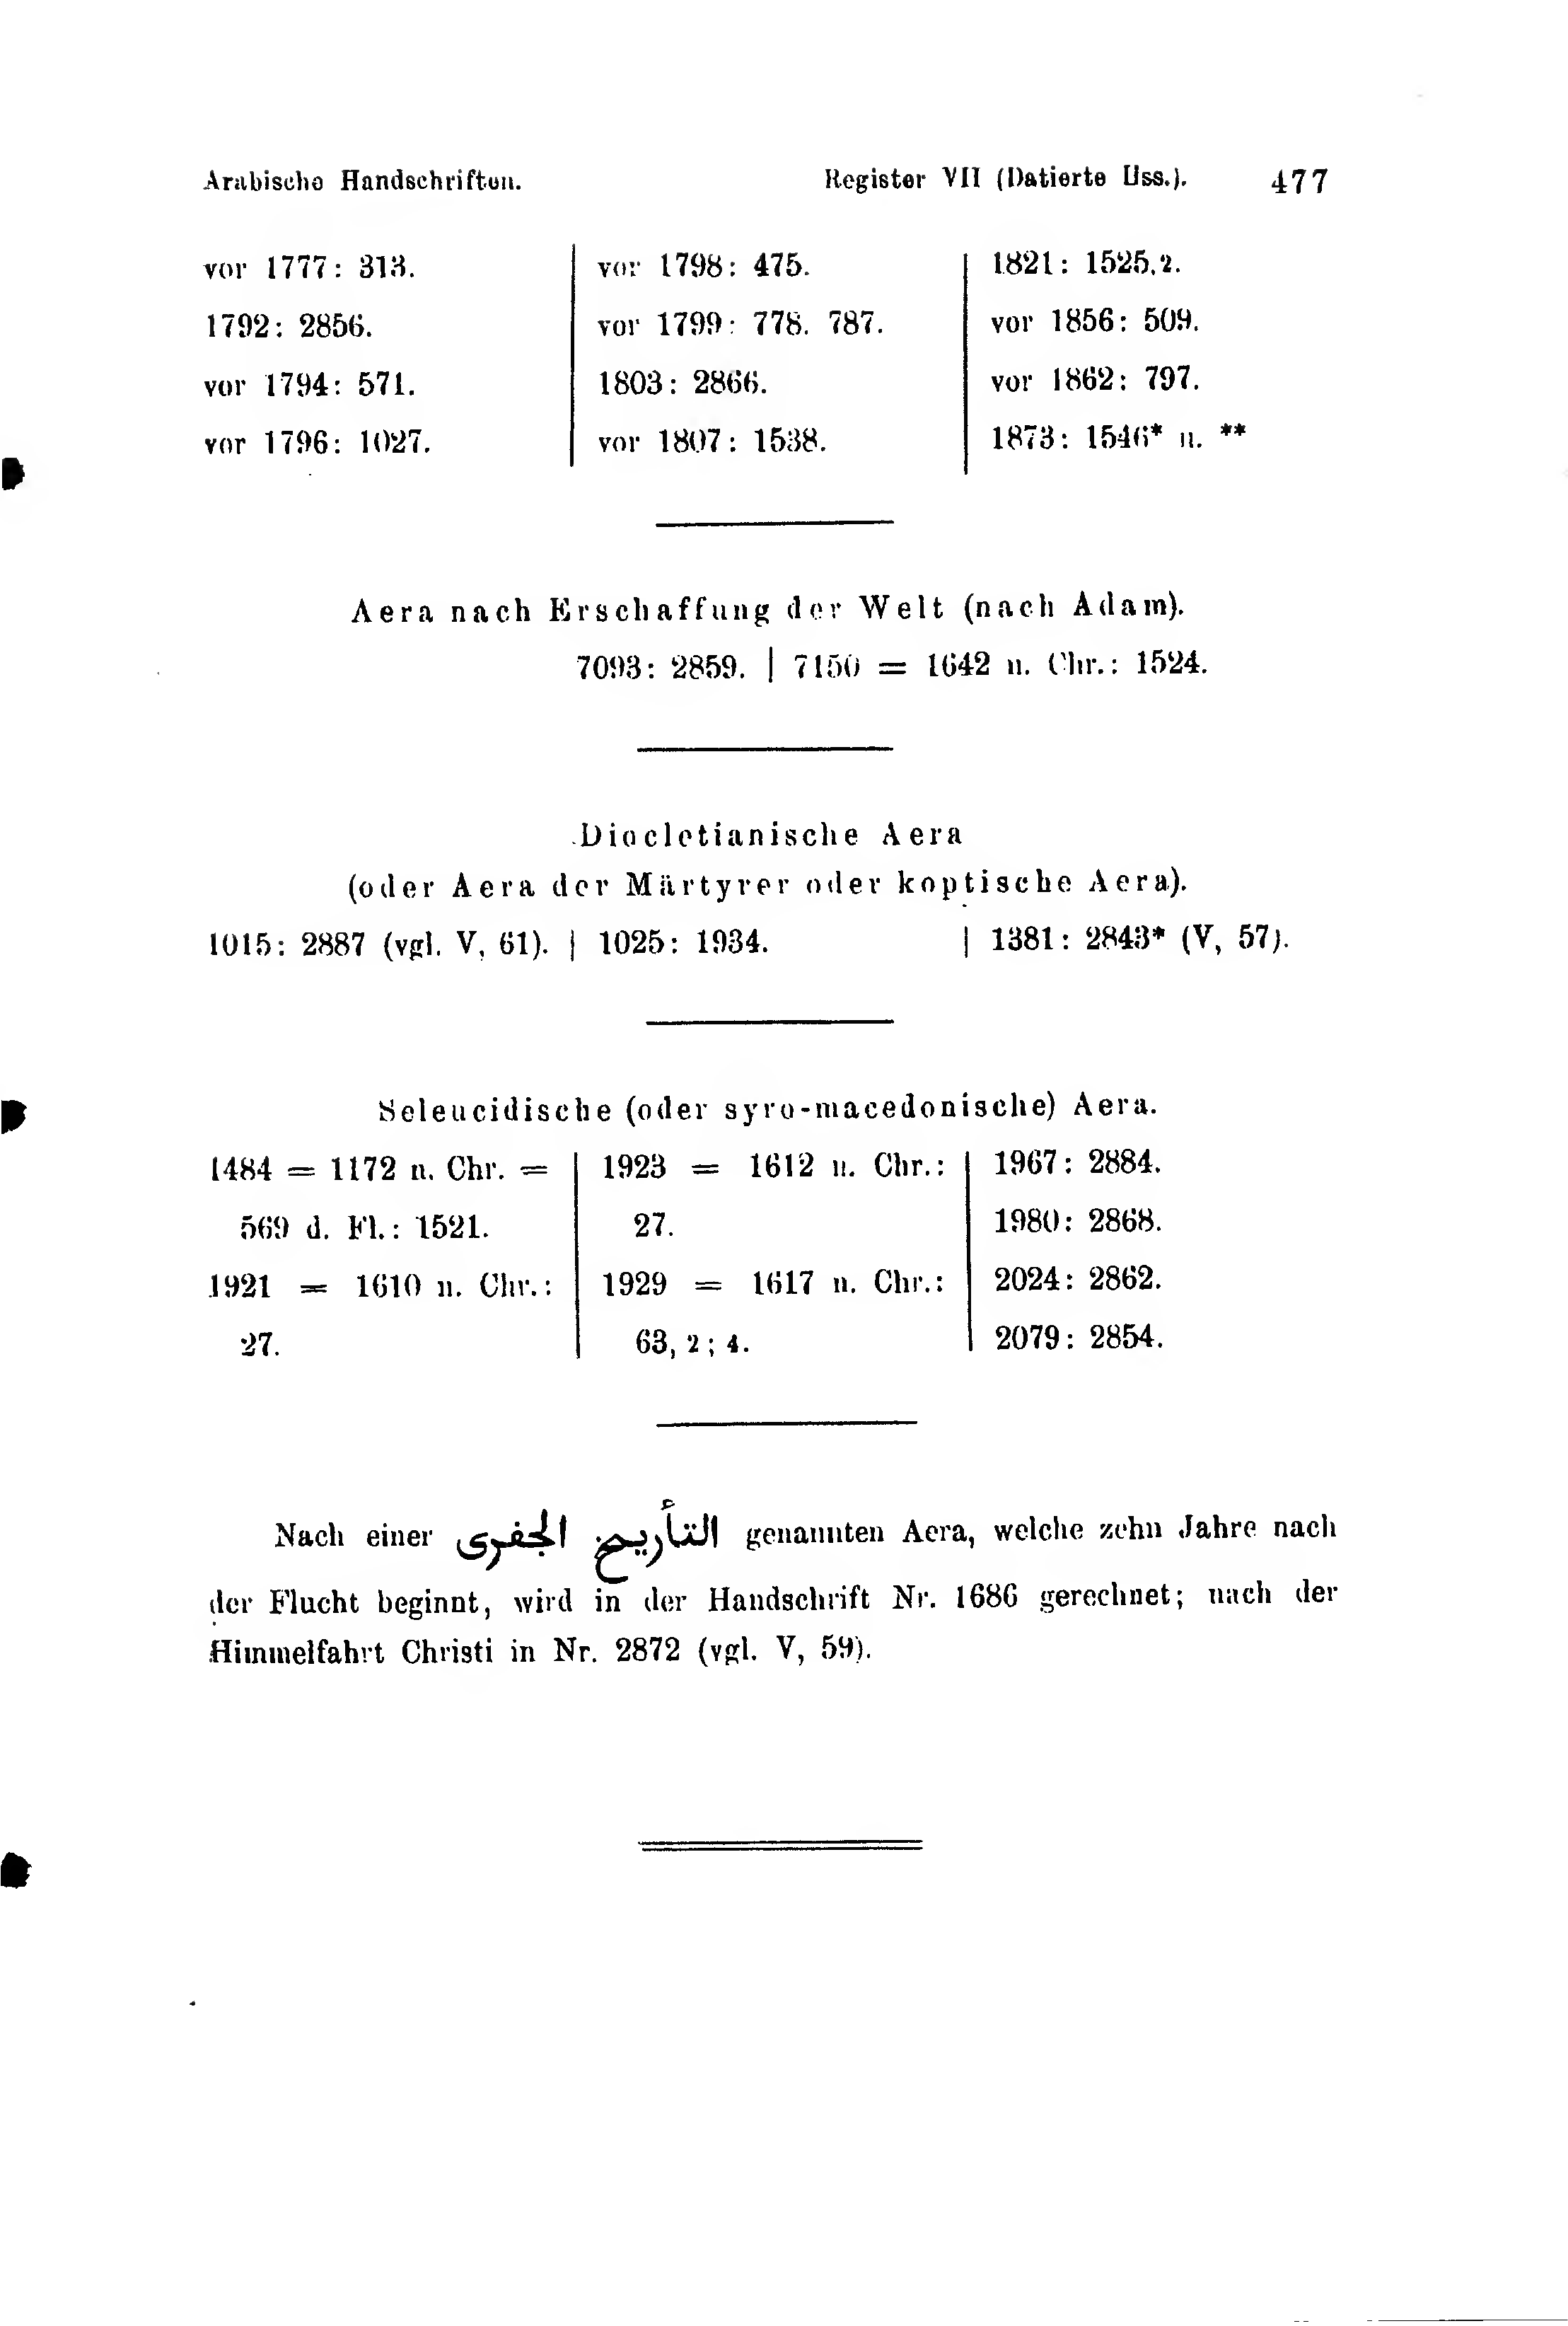 Arabische Handschriften. Register VII (Datierte Hss.). 477
vor 1777: 313.
1792: 2856.
vor 1794: 571.
vor 1796: 1027.
vor 1798: 475.
vor 1799: 778. 787.
1803: 2866.
vor 1807: 1538.
1821: 1525,2.
vor 1856: 509.
vor 1862: 797.
1873: 1546* u. **
Aera nach Erschaffung der Welt (nach Adam).
7093: 2859. | 7150 = 1642 n. Chr.: 1524.
Diocletianische Aera
(oder Aera der Märtyrer oder koptische Aera).
1015: 2887 (vgl. V, 61). | 1025: 1934. | 1381: 2843* (V, 57).
Seleucidische (oder syro-macedonische) Aera.
1484 = 1172 n. Chr. =
569 d. Fl.: 1521.
1921 = 1610 n. Chr.:
27.
1923 = 1612 n. Chr.:
27.
1929 = 1617 n. Chr.:
63, 2; 4.
1967: 2884.
1980: 2868.
2024: 2862.
2079: 2854.
Nach einer التأريخ الجفرى genannten Aera, welche zehn Jahre nach
der Flucht beginnt, wird in der Handschrift Nr. 1686 gerechnet; nach der
Himmelfahrt Christi in Nr. 2872 (vgl. V, 59).